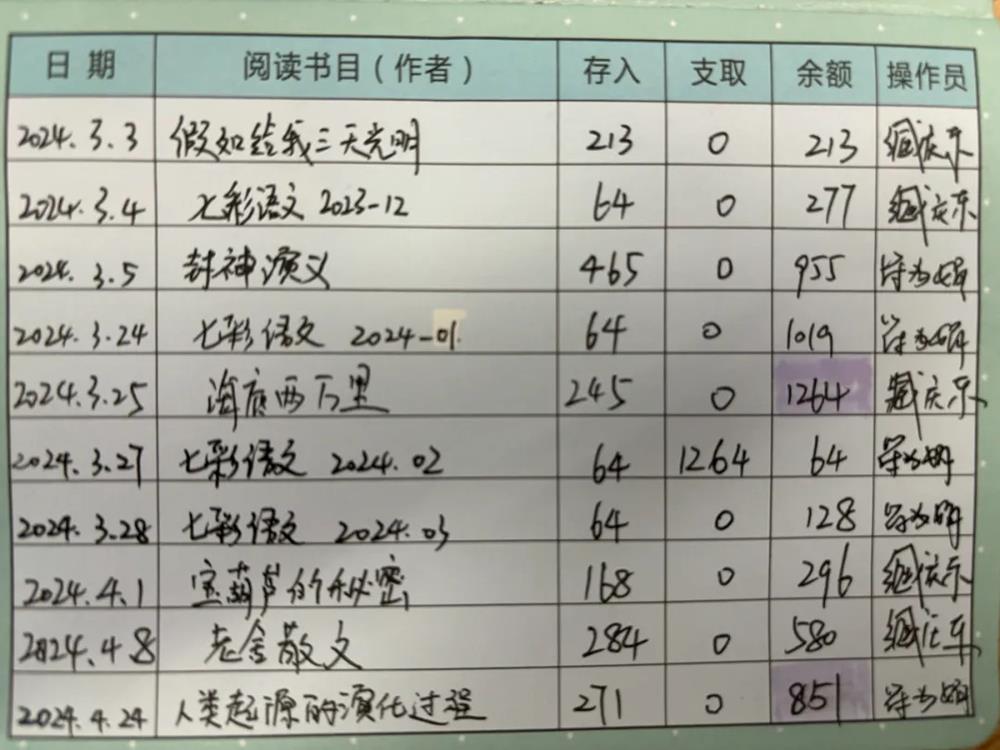 日期 阅读书目（作者） 存入 支取 余额 操作员
2024.3.3 假如给我三天光明 213 0 213
2024.3.4 七彩语文 2023-12 64 0 277
2024.3.5 封神演义 465 0 955
2024.3.24 七彩语文 2024-01. 64 0 1019
2024.3.25 海底两万里 245 0 1264
2024.3.27 七彩语文 2024.02 64 1264 64
2024.3.28 七彩语文 2024.03 64 0 128
2024.4.1 宝葫芦的秘密 168 0 296
2024.4.8 老舍散文 284 0 580
2024.4.24 人类起源的演化过程 271 0 851